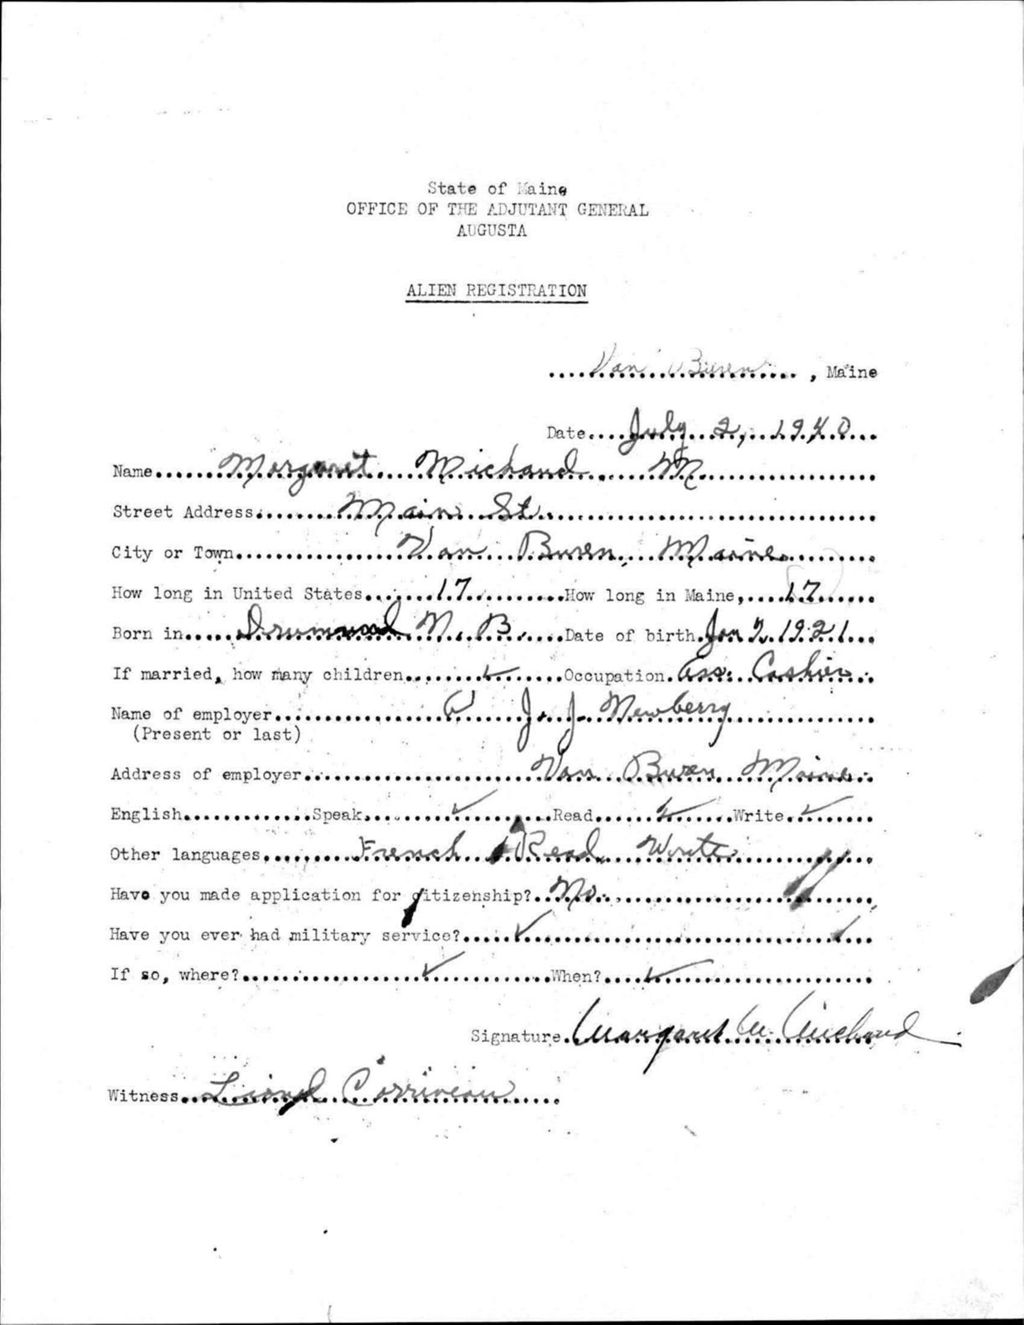 State of Maine
OFFICE OF THE ADJUTANT GENERAL
AUGUSTA
ALIEN REGISTRATION
Van Buren, Maine
Date July 2, 1940
Name Margaret Michaud M
Street Address Main St.
City or Town Van Buren, Maine
How long in United States 17 How long in Maine, 17
Born in Drummond N. B. Date of birth Jan 2, 1921
If married, how many children ✓ Occupation Ass. Cashier
Name of employer J. J. Newberry
(Present or last)
Address of employer Van Buren Maine
English Speak ✓ Read ✓ Write ✓
Other languages French Read, Write
Have you made application for citizenship? No.
Have you ever had military service? ✓
If so, where? ✓ When? ✓
Signature Margaret M. Michaud
Witness Lionel Corriveau